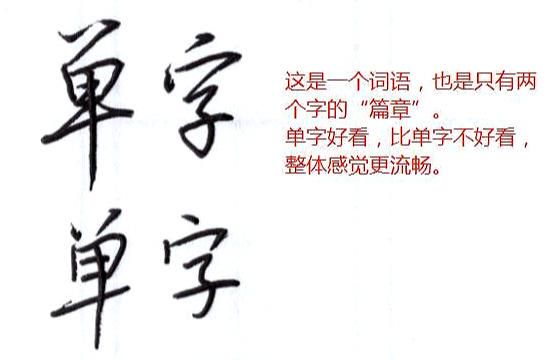 单字
这是一个词语，也是只有两
个字的“篇章”。
单字好看，比单字不好看，
整体感觉更流畅。
单字